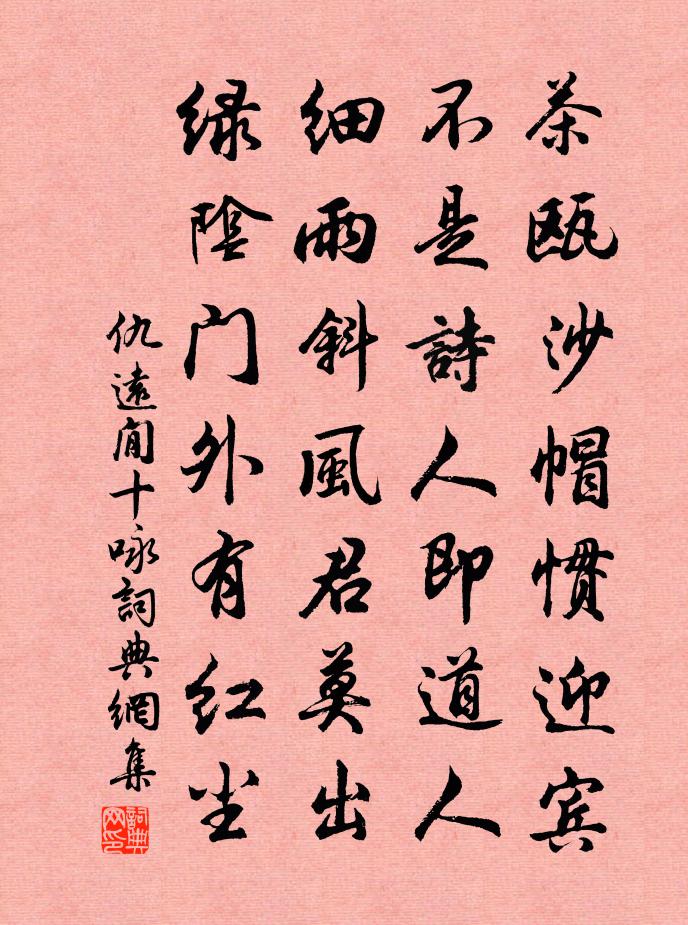 茶瓯沙帽惯迎宾
不是詩人即道人
細雨斜風君莫出
緑陰门外有红尘
仇遠閒十咏詞典網集
詞典网印